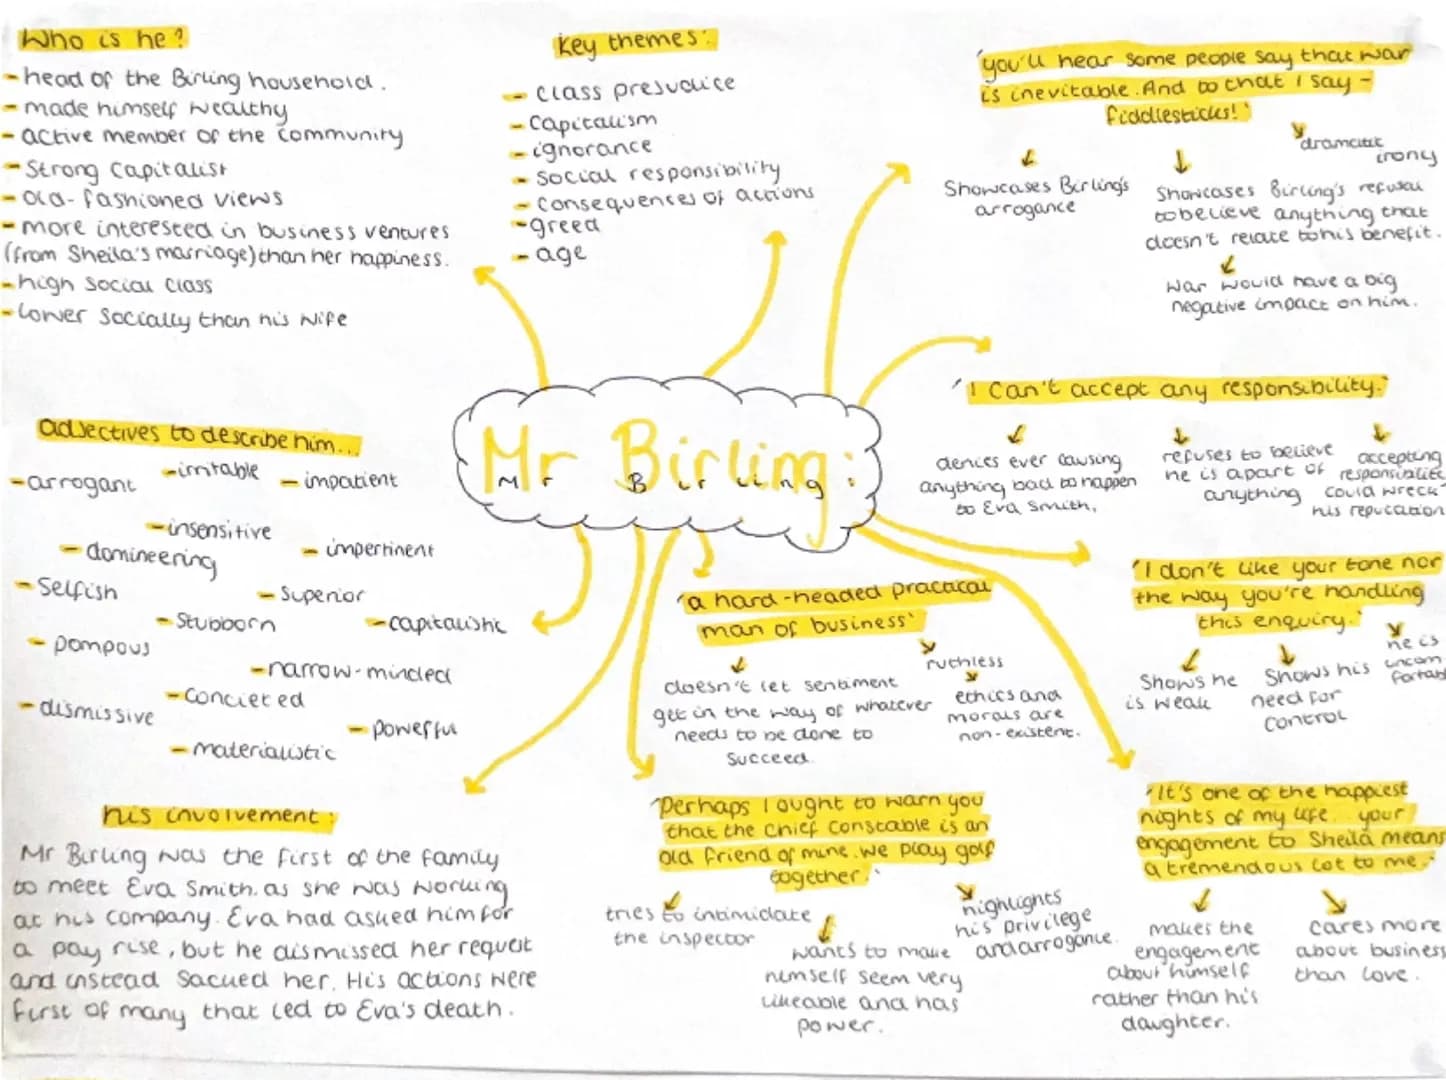 Who is he?
- head of the Birling household.
- made himself wealthy
- active member of the community
- Strong Capitalist
- old-fashioned views
- more interested in business ventures
(from Sheila's marriage) than her happiness.
- high social class
- lower socially than his wife
key themes:
- class prejudice
- Capitalism
- ignorance
- social responsibility
- consequences of actions
- greed
- age
'you'll hear some people say that war
is inevitable. And to that I say -
fiddlesticks!'
Showcases Birling's
arrogance
Showcases Birling's refusal
to believe anything that
doesn't relate to his benefit.
war would have a big
negative impact on him.
dramatic
irony
'I can't accept any responsibility.'
denies ever causing
anything bad to happen
to Eva Smith.
refuses to believe
he is apart of
anything
accepting
could wreck
his reputation
Mr Birling:
adjectives to describe him...
- arrogant
- irritable
- impatient
- insensitive
- domineering
- impertinent
- Selfish
- Superior
- Stubborn
- capitalistic
- pompous
- narrow-minded
- Concieted
- dismissive
- powerful
- materialistic
'a hard-headed practical
man of business'
doesn't let sentiment
get in the way of whatever
needs to be done to
succeed.
ruthless
ethics and
morals are
non-existent.
'I don't like your tone nor
the way you're handling
this enquiry.'
Shows he
is weak
Shows his
need for
control
he is
his involvement:
Mr Birling was the first of the family
to meet Eva Smith. as she was working
at his company. Eva had asked him for
a pay rise, but he dismissed her request
and instead Sacked her. His actions were
first of many that led to Eva's death.
'Perhaps I ought to warn you
that the Chief Constable is an
old friend of mine. We play golf
together.'
tries to intimidate
the inspector
wants to make
himself seem very
likeable and has
power.
highlights
his privilege
and arrogance.
'It's one of the happiest
nights of my life... your
engagement to Sheila means
a tremendous lot to me.'
makes the
engagement
about himself
rather than his
daughter.
cares more
about business
than love.